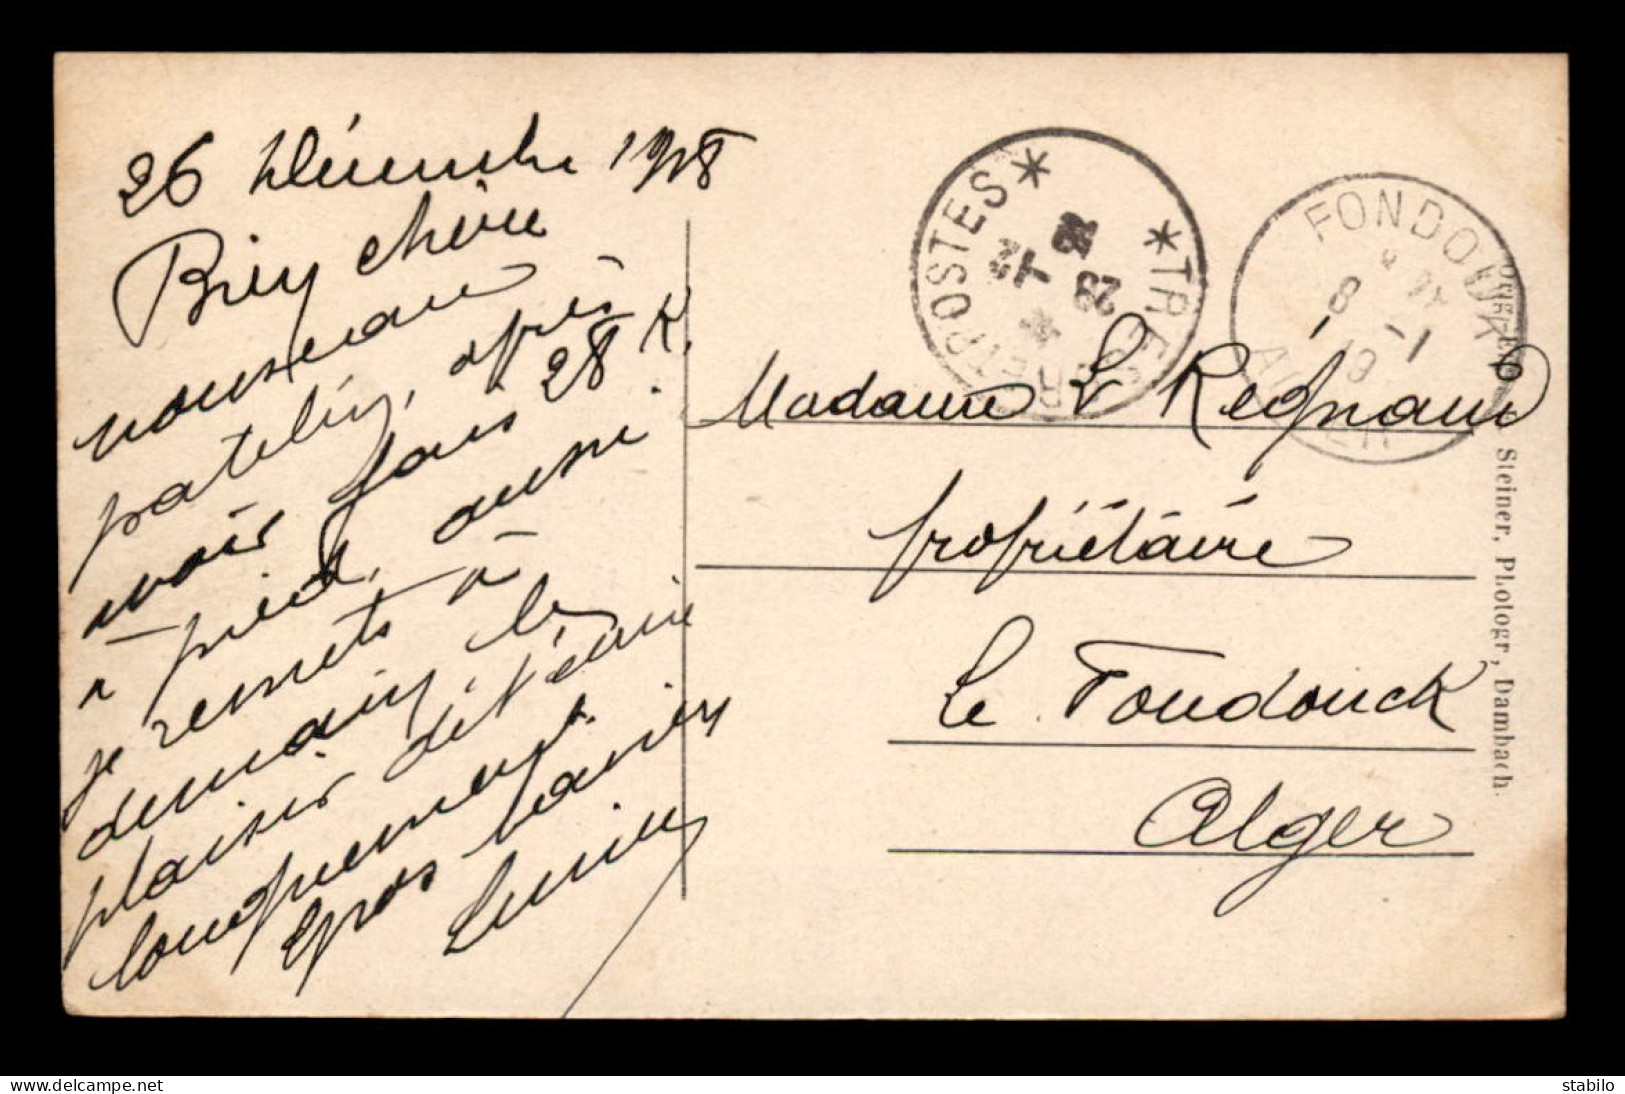 26 Décembre 1918
Bien chère
nouveau
patelin, après
avoir fait 28 K.
à pied, aussi
je remets à
demain, le
plaisir de t'écrire
longuement.
Gros baisers
Lucien
* TRESOR ET POSTES *
28
12
FONDOUK
8 -1
19
ALGER
Madame L Régnaud
propriétaire
Le Fondouck
Alger
Steiner, Photogr., Dambach.
stabilo